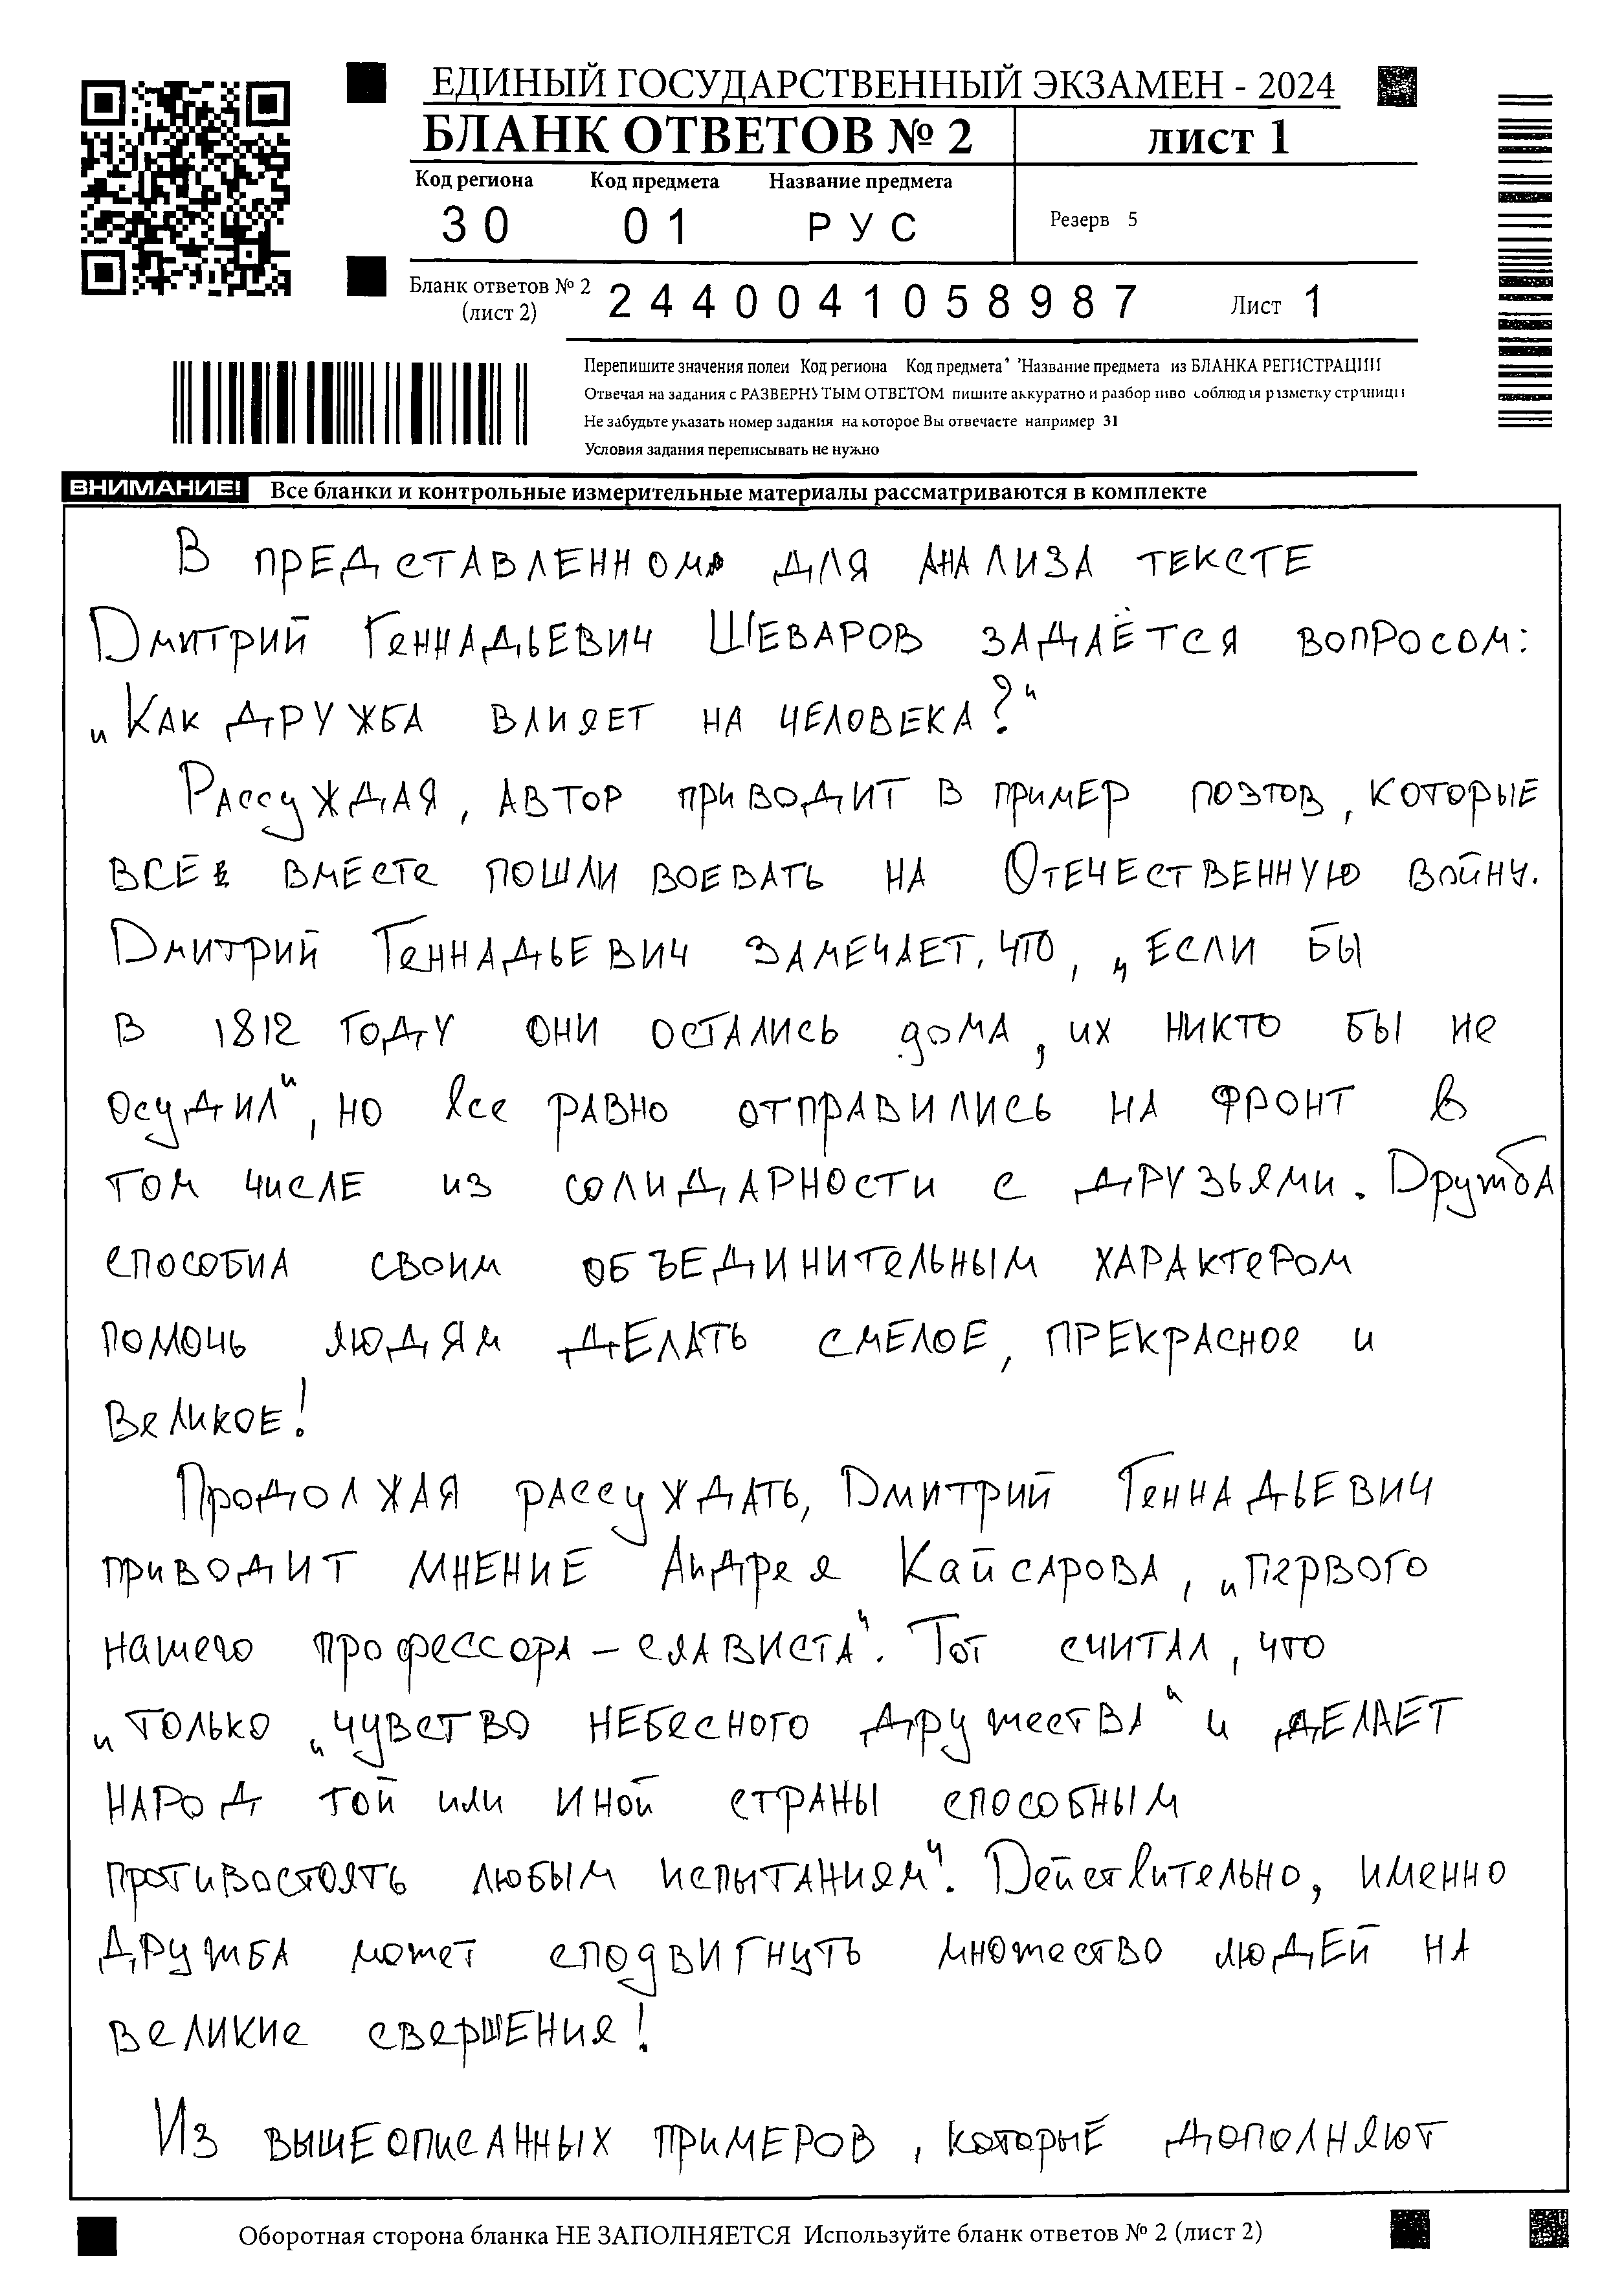 ЕДИНЫЙ ГОСУДАРСТВЕННЫЙ ЭКЗАМЕН - 2024
БЛАНК ОТВЕТОВ № 2 лист 1
Код региона Код предмета Название предмета
30 01 РУС Резерв 5
Бланк ответов № 2 (лист 2) 2440041058987 Лист 1
Перепишите значения полей Код региона Код предмета' 'Название предмета из БЛАНКА РЕГИСТРАЦИИ
Отвечая на задания с РАЗВЕРНУТЫМ ОТВЕТОМ пишите аккуратно и разборчиво соблюдая разметку страницы
Не забудьте указать номер задания на которое Вы отвечаете например 31
Условия задания переписывать не нужно
ВНИМАНИЕ! Все бланки и контрольные измерительные материалы рассматриваются в комплекте
В представленном для анализа тексте
Дмитрий Геннадьевич Шеваров задаётся вопросом:
„Как дружба влияет на человека?“
Рассуждая, автор приводит в пример поэтов, которые
все вместе пошли воевать на Отечественную войну.
Дмитрий Геннадьевич замечает, что, „если бы
в 1812 году они остались дома, их никто бы не
осудил“, но все равно отправились на фронт в
том числе из солидарности с друзьями. Дружба
способна своим объединительным характером
помочь людям делать смелое, прекрасное и
великое!
Продолжая рассуждать, Дмитрий Геннадьевич
приводит мнение Андрея Кайсарова, „первого
нашего профессора-слависта“. Тот считал, что
„только „чувство небесного дружества“ и делает
народ той или иной страны способным
противостоять любым испытаниям“. Действительно, именно
дружба может сподвигнуть множество людей на
великие свершения!
Из вышеописанных примеров, которые дополняют
Оборотная сторона бланка НЕ ЗАПОЛНЯЕТСЯ Используйте бланк ответов № 2 (лист 2)